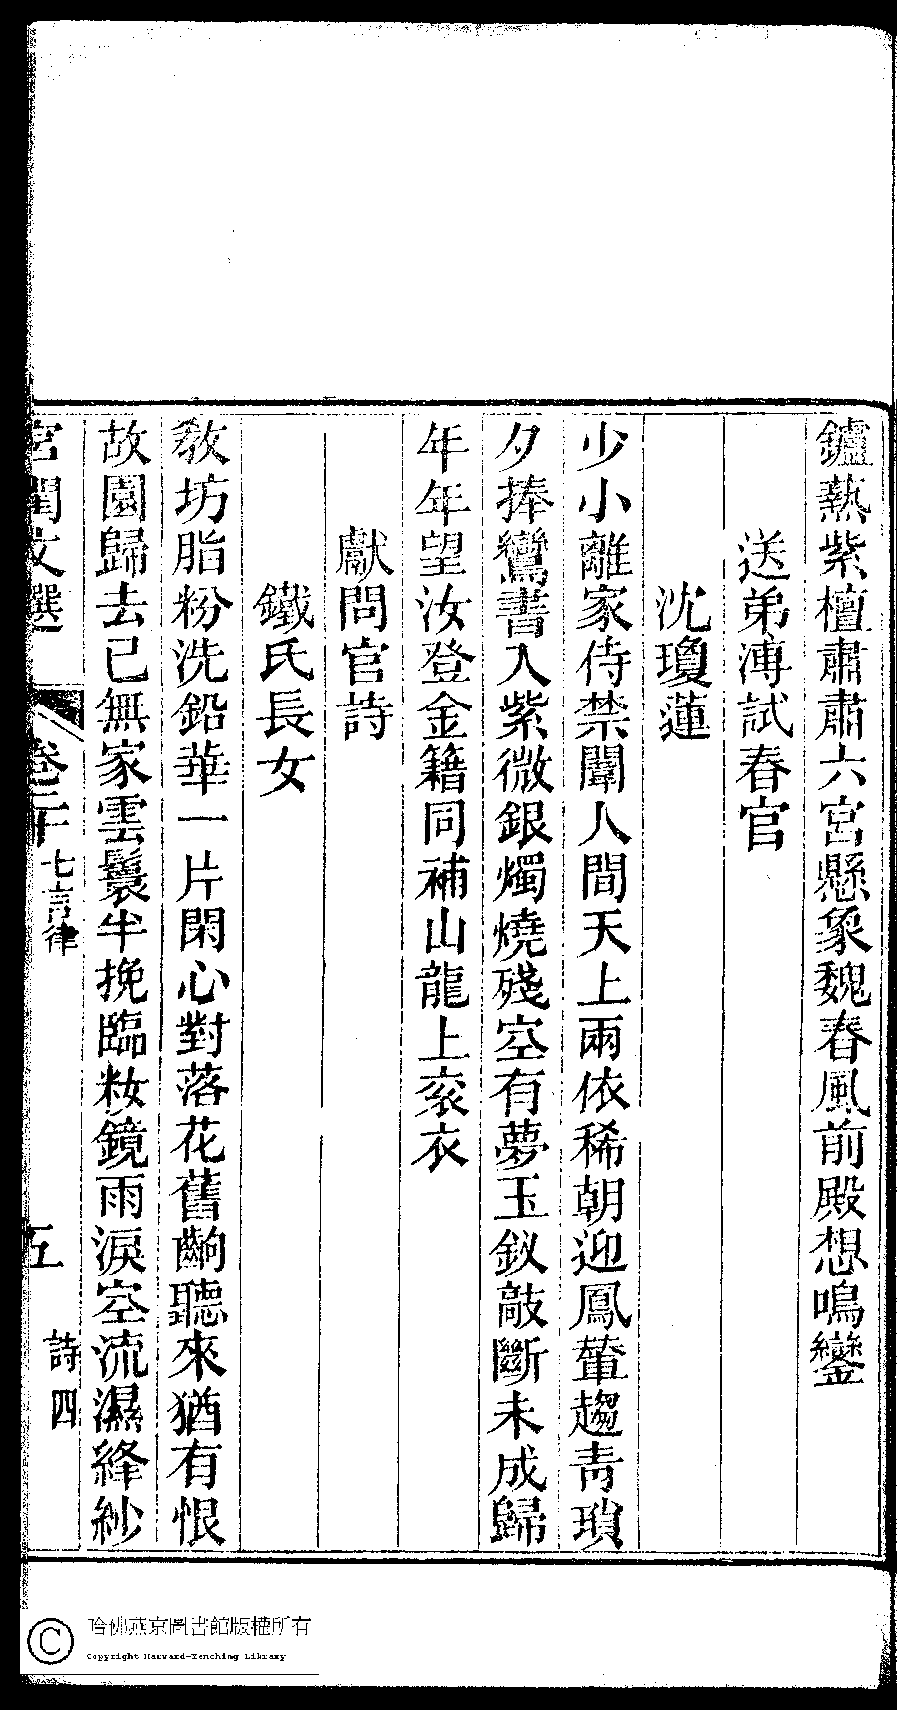 鑪熱紫檀肅肅六宮懸象魏春風前殿想鳴鑾
送弟溥試春官
沈瓊蓮
少小離家侍禁闈人間天上兩依稀朝迎鳳輦趨青瑣
夕捧鸞書入紫微銀燭燒殘空有夢玉釵敲斷未成歸
年年望汝登金籍同補山龍上衮衣
獻問官詩
鐵氏長女
敎坊脂粉洗鉛華一片閑心對落花舊齣聽來猶有恨
故園歸去已無家雲鬟半挽臨粧鏡雨淚空流濕絳紗
宮閨文選 卷二十 七言律 五 詩四
哈佛燕京圖書館版權所有
Copyright Harvard-Yenching Library